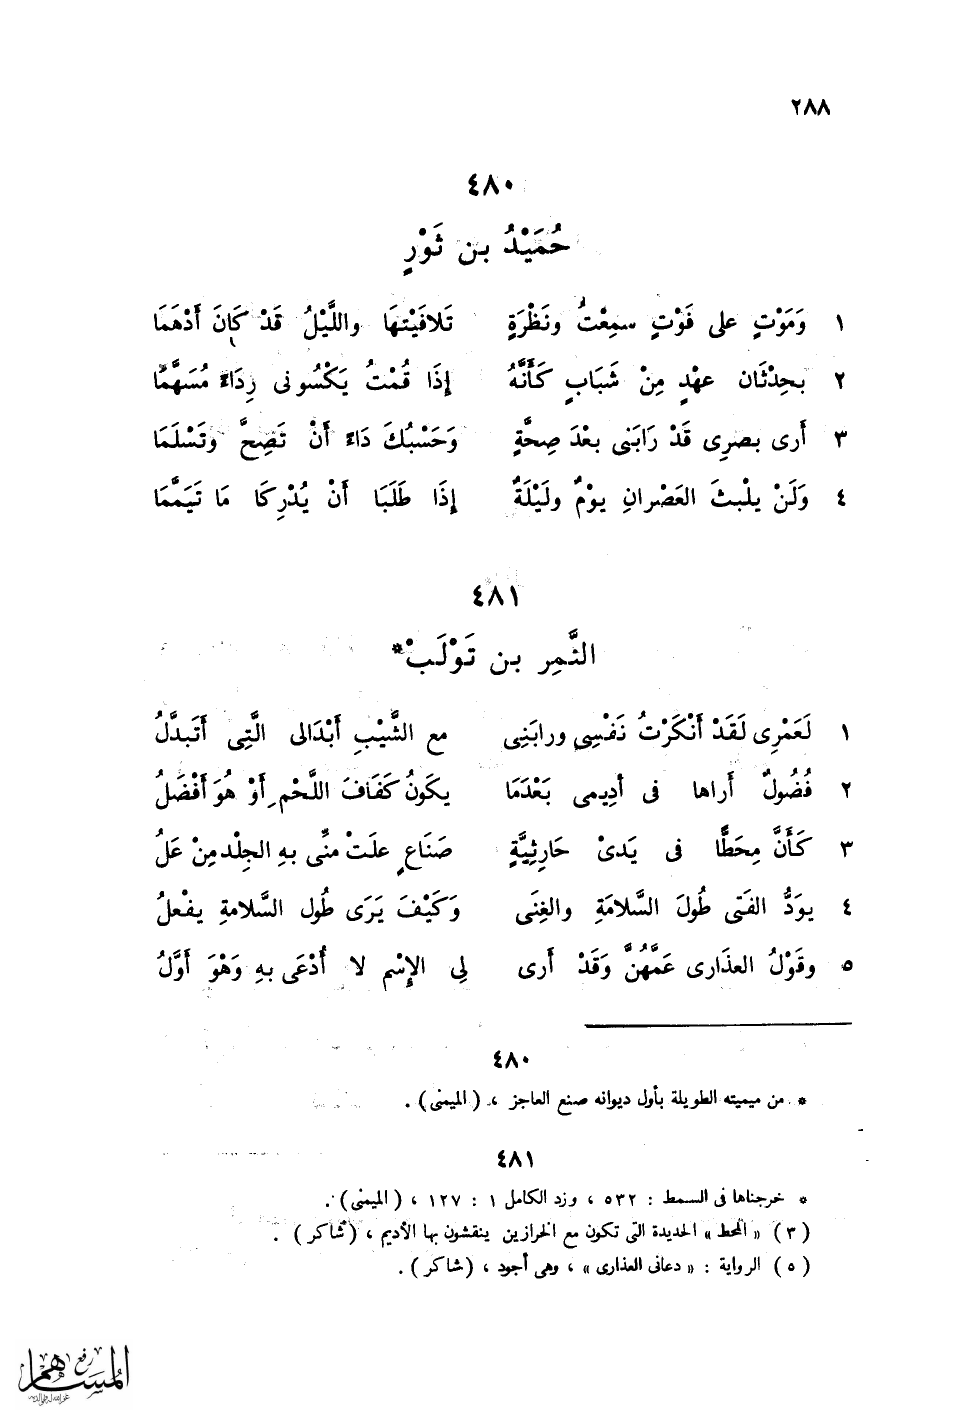 ٢٨٨
٤٨٠
حُمَيْدُ بن ثَوْرٍ
١ وَمَوْتٍ على فَوْتٍ سمِعْتُ ونَظْرَةٍ تَلافَيْتهَا واللَّيْلُ قَدْ كَانَ أَدْهَمَا
٢ بحِدْثَان عهْدٍ مِنْ شَبَابٍ كَأَنَّهُ إِذَا قُمْتُ يَكْسُونى رِدَاءً مُسَهَّمَّا
٣ أَرى بصرِى قَدْ رَابَنى بعْدَ صِحَّةٍ وَحَسْبُكَ دَاءً أَنْ تَصِحَّ وتَسْلَمَا
٤ وَلَنْ يلْبثَ العَصْرانِ يوْمٌ ولَيْلَةٌ إِذَا طَلَبَا أَنْ يُدْرِكَا مَا تَيَمَّمَا
٤٨١
النَّمِر بن تَوْلَبْ*
١ لَعَمْرِى لَقَدْ أَنْكَرْتُ نَفْسِى ورابَنِى مع الشَّيْبِ أَبْدَالى الَّتِى أَتَبدَّلُ
٢ فُضُولٌ أَراها فى أَدِيمى بَعْدَمَا يكَونُ كَفَافَ اللَّحْمِ أَوْ هُوَ أَفْضَلُ
٣ كَأَنَّ مِحَطًّا فى يَدىْ حَارِثِيَّةٍ صَنَاعٍ علَتْ منِّى بهِ الجِلْد مِنْ عَلُ
٤ يوَدُّ الفَتى طُولَ السَّلامَةِ والغِنَى وَكَيْفَ يَرَى طُول السَّلامةِ يفْعلُ
٥ وقَوْلُ العذَارى عَمَّهُنَّ وَقَدْ أَرى لِى الإِسْم لا أُدْعَى بهِ وَهْوَ أَوَّلُ
٤٨٠
* من ميميته الطويلة بأول ديوانه صنع العاجز ، (الميمنى) .
٤٨١
* خرجناها فى السمط : ٥٣٢ ، وزد الكامل ١ : ١٢٧ ، (الميمنى) .
(٣) « المحط » الحديدة التى تكون مع الخرازين ينقشون بها الأديم ، (شاكر) .
(٥) الرواية : « دعانى العذارى » ، وهى أجود ، (شاكر) .